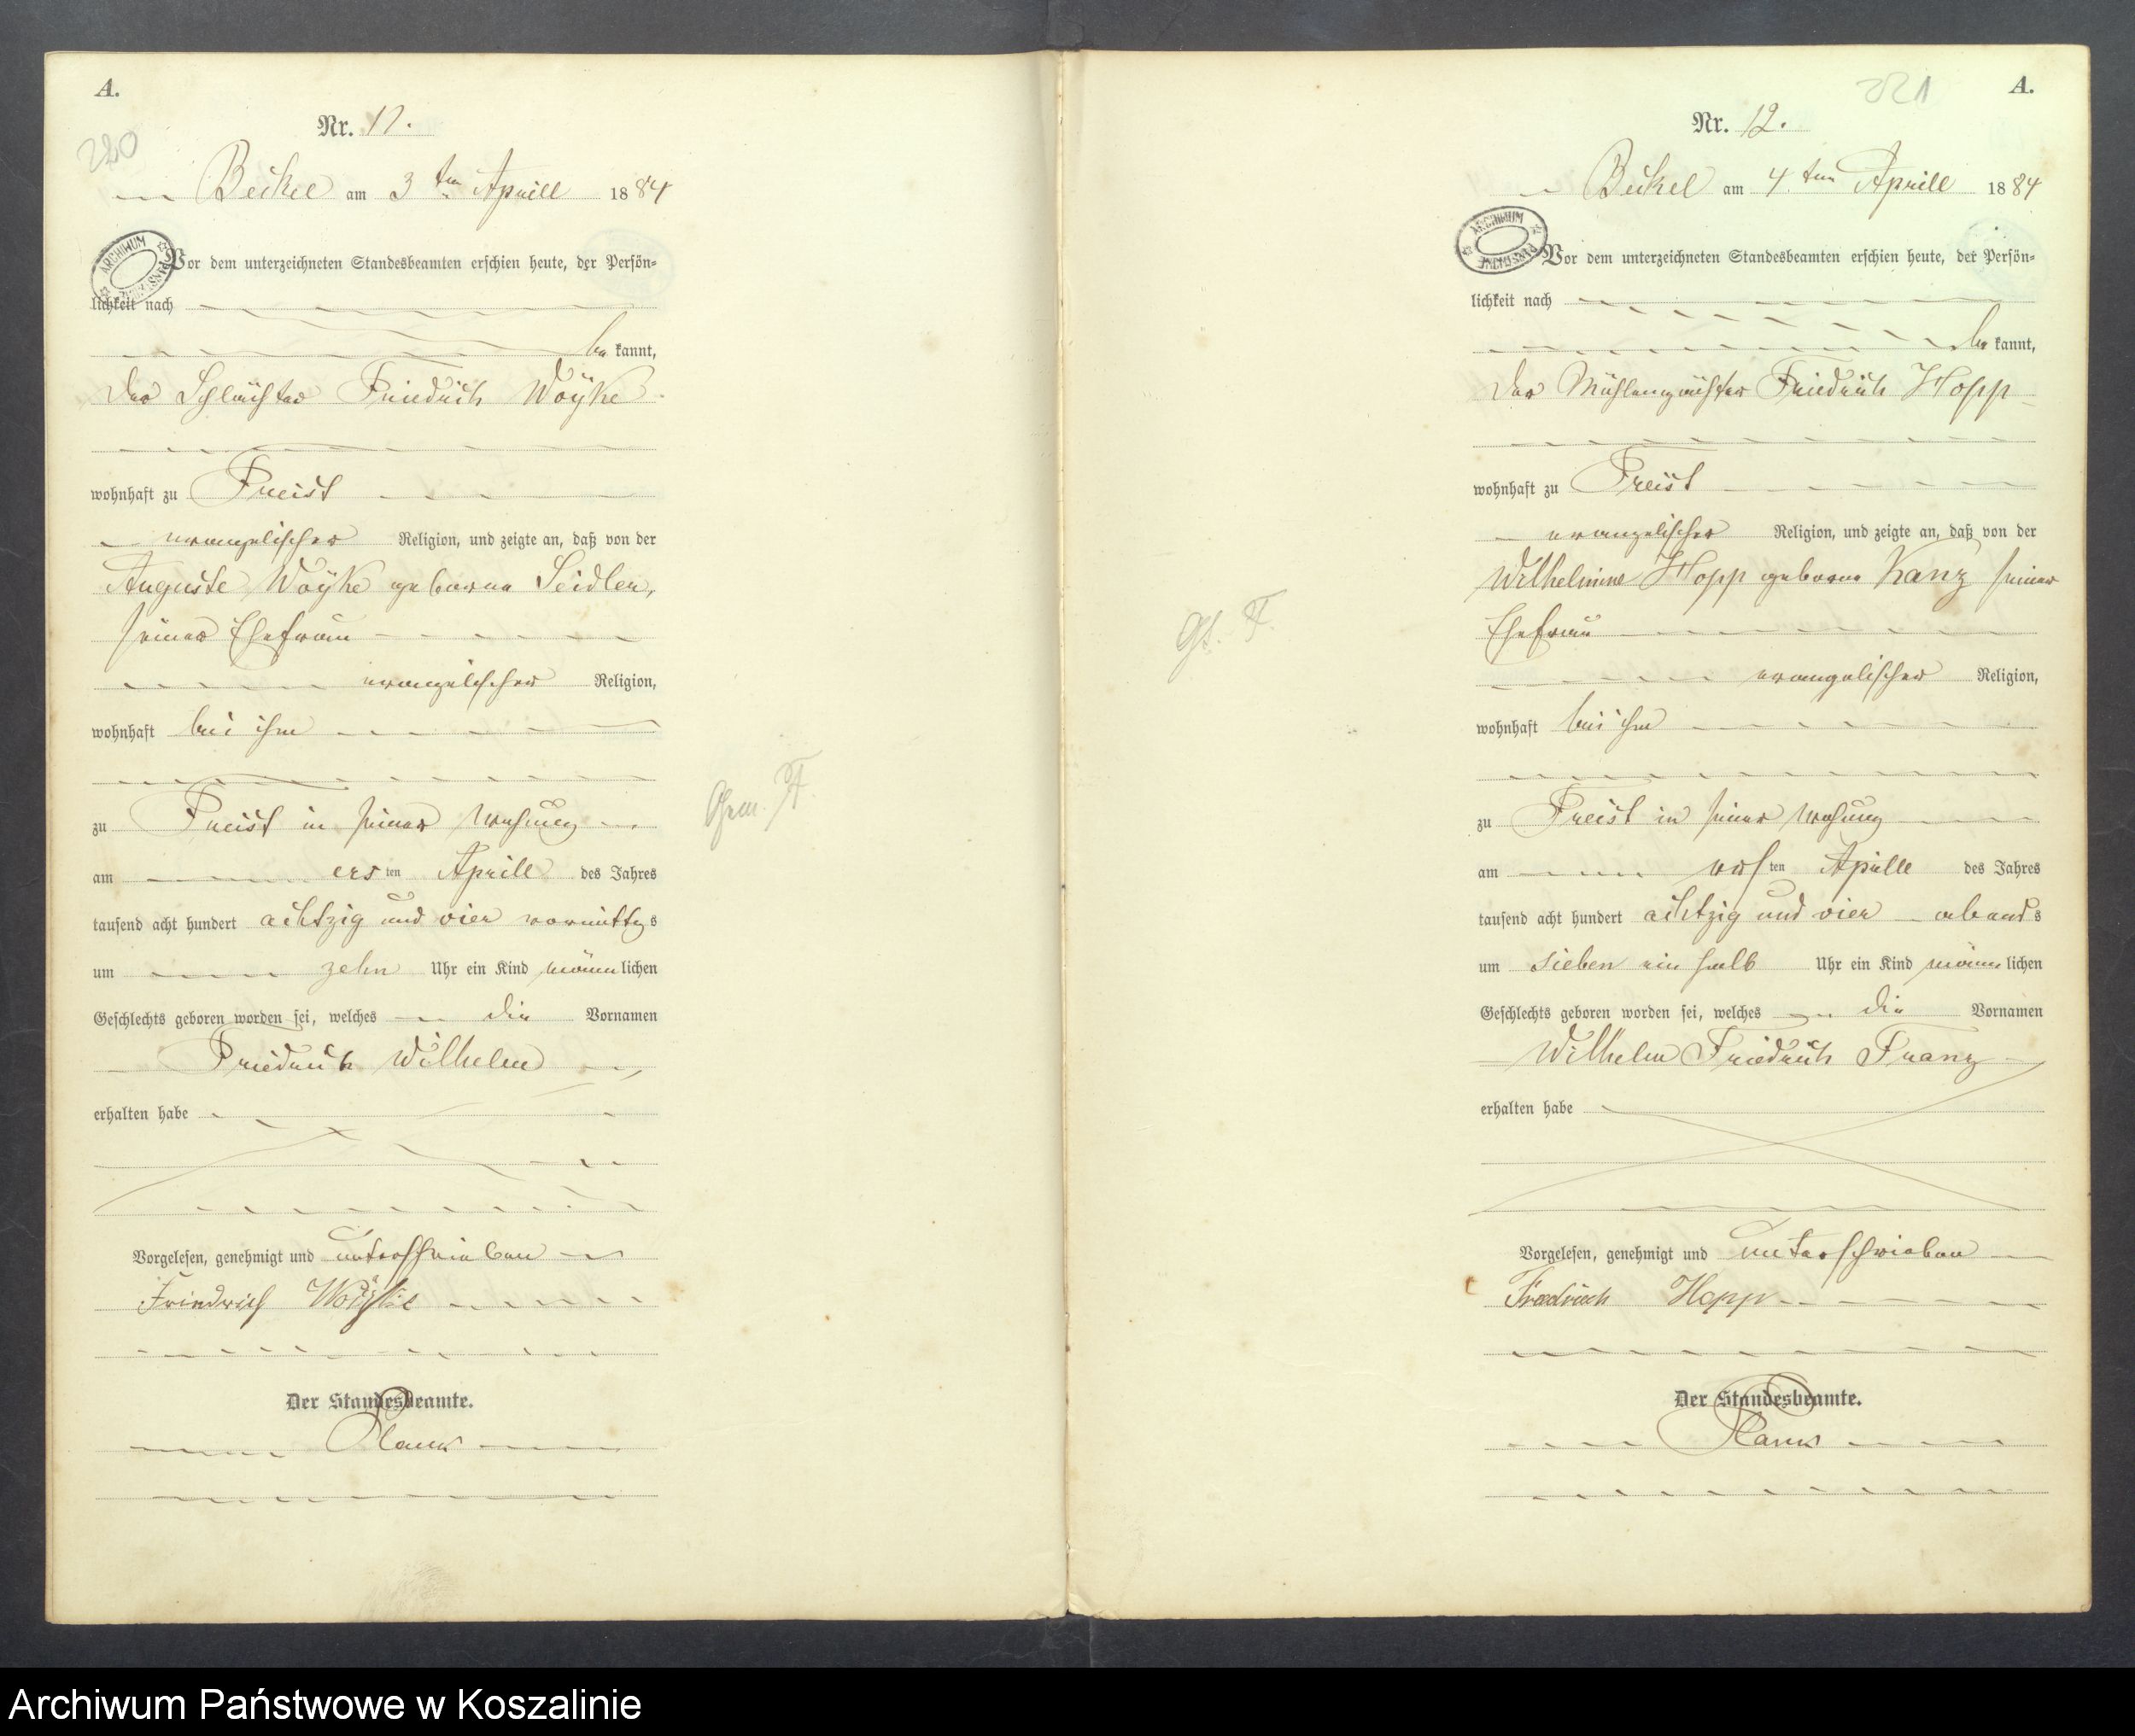 A.
220
Nr. 11.
Beckel am 3 ten Aprill 1884
ARCHIWUM PAŃSTWOWE
Vor dem unterzeichneten Standesbeamten erschien heute, der Persön=
lichkeit nach
be kannt,
der Friedrich Woÿke
wohnhaft zu Freist
evangelischer Religion, und zeigte an, daß von der
Auguste Woÿke geborne Seidler,
seiner Ehefrau
evangelischer Religion,
wohnhaft bei ihm
zu Freist in seiner Wohnung
am ersten Aprill des Jahres
tausend acht hundert achtzig und vier vormittgs
um zehn Uhr ein Kind männlichen
Geschlechts geboren worden sei, welches die Vornamen
Friedrich Wilhelm
erhalten habe
Vorgelesen, genehmigt und unterschrieben
Friedrich Woÿke
Der Standesbeamte.
Gem. F.
A.
221
Nr. 12.
Beckel am 4. ten Aprill 1884
ARCHIWUM PAŃSTWOWE
Vor dem unterzeichneten Standesbeamten erschien heute, der Persön=
lichkeit nach
be kannt,
der Friedrich Hopp
wohnhaft zu Freist
evangelischer Religion, und zeigte an, daß von der
Wilhelmine Hopp geborne Kanz seiner
Ehefrau
evangelischer Religion,
wohnhaft bei ihm
zu Freist in seiner Wohnung
am ersten Aprille des Jahres
tausend acht hundert achtzig und vier abends
um sieben ein halb Uhr ein Kind männlichen
Geschlechts geboren worden sei, welches die Vornamen
Wilhelm Friedrich Franz
erhalten habe
Vorgelesen, genehmigt und unterschrieben
Friedrich Hopp
Der Standesbeamte.
Gt. F.
Archiwum Państwowe w Koszalinie